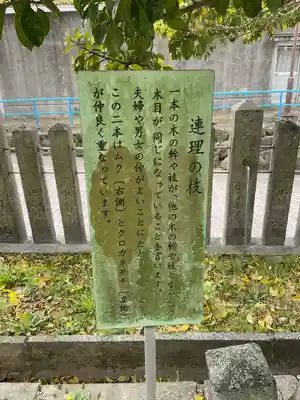 連理の枝
一本の木の幹や枝が、他の木の幹や枝と
木目が同じになっていることを言います。
夫婦や男女の仲がよいことにた
この二本はムク（右側）とクロガネモチ（左側）
が仲良く重なっています。